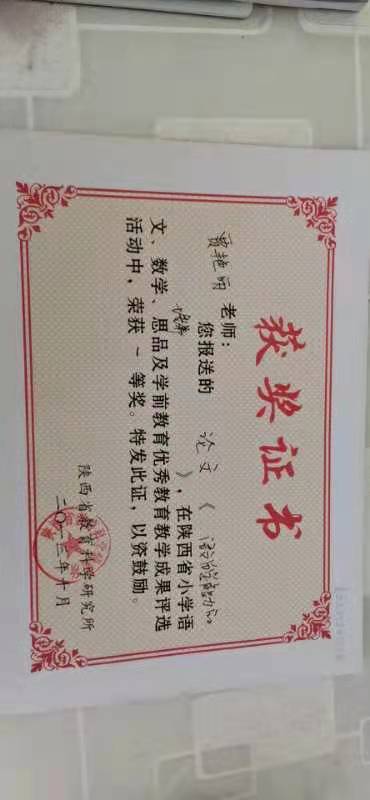 获奖证书
贾艳丽 老师：
您报送的 论文《
》，在陕西省小学语
文、数学、思品及学前教育优秀教育教学成果评选
活动中，荣获 一 等奖。特发此证，以资鼓励。
陕西省教育科学研究所
二〇一三年十月